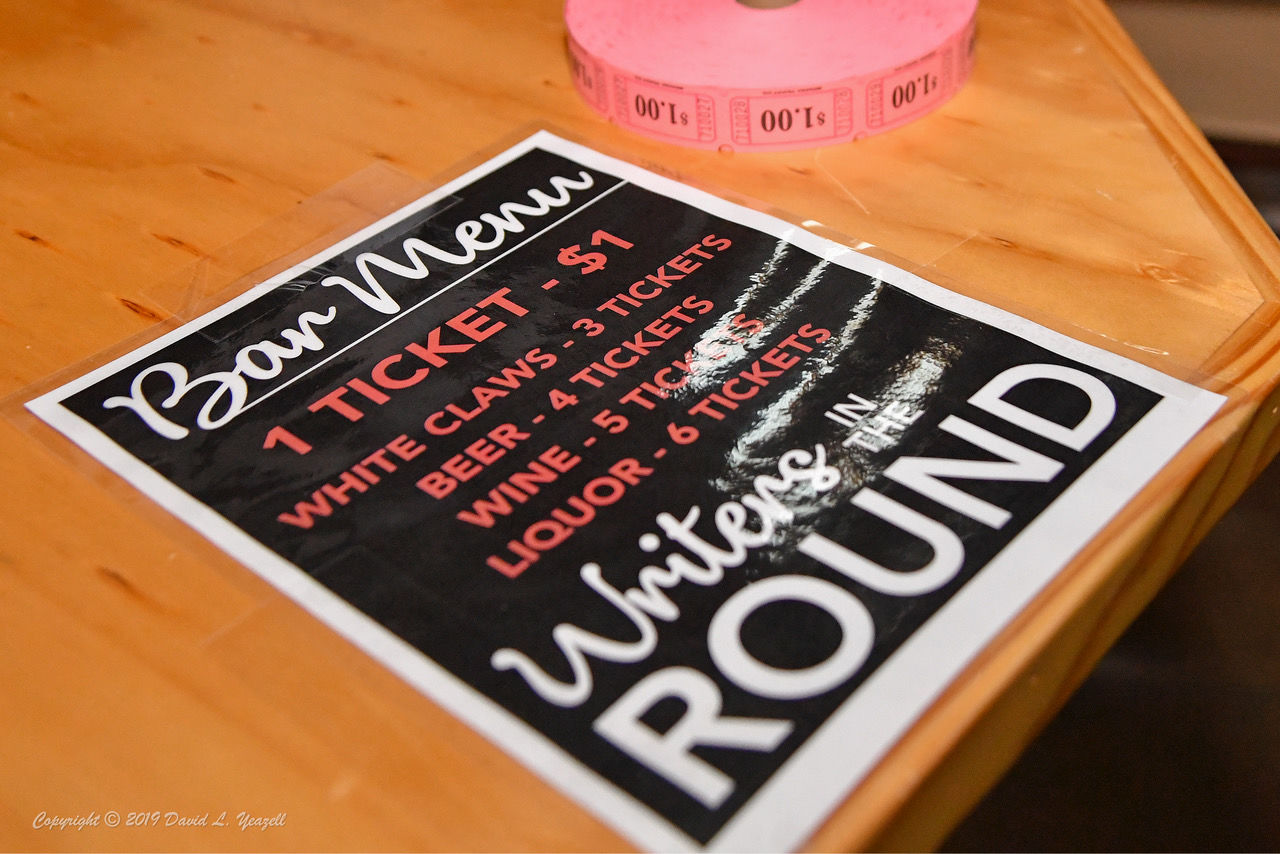 $1.00
$1.00
$1.00
Bar Menu
1 TICKET - $1
WHITE CLAWS - 3 TICKETS
BEER - 4 TICKETS
WINE - 5 TICKETS
LIQUOR - 6 TICKETS
Writers IN THE
ROUND
Copyright © 2019 David L. Yeazell